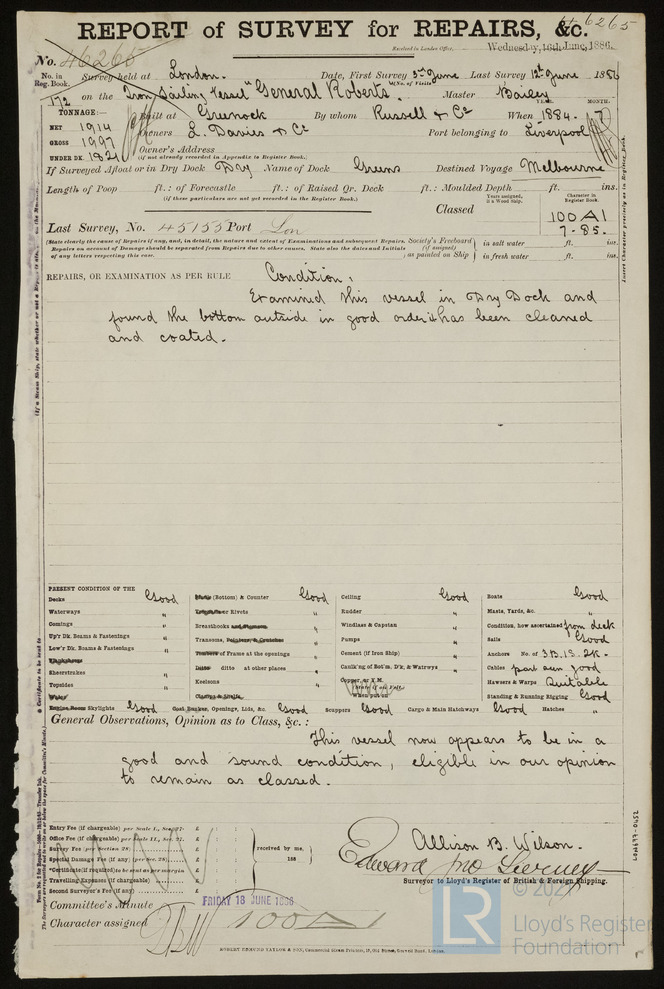 REPORT of SURVEY for REPAIRS, &c.
46265
Received in London Office, Wednesday, 16th June, 1886.
No. 46265
No. in Reg. Book. Survey held at London. Date, First Survey 3rd June Last Survey 12th June 1886
(No. of Visits
172 on the Iron Sailing Vessel "General Roberts". Master Bailey
TONNAGE:— Built at Greenock By whom Russell & Co When YEAR. 1884. MONTH. 7
NET 1914
GROSS 1997 Owners L. Davies & Co Port belonging to Liverpool
UNDER DK. 1821 Owner's Address
(if not already recorded in Appendix to Register Book.)
If Surveyed Afloat or in Dry Dock Dry Name of Dock Greens Destined Voyage Melbourne
Length of Poop ft.: of Forecastle ft.: of Raised Qr. Deck ft.: Moulded Depth ft. ins.
(if these particulars are not yet recorded in the Register Book.)
Years assigned, if a Wood Ship. Character in Register Book.
Classed 100A1
7-85.
Last Survey, No. 45155 Port Lon
(State clearly the cause of Repairs if any, and, in detail, the nature and extent of Examinations and subsequent Repairs.
Repairs on account of Damage should be separated from Repairs due to other causes. State also the dates and Initials
of any letters respecting this case.
Society's Freeboard (if assigned) as painted on Ship
in salt water ft. ins.
in fresh water ft. ins.
REPAIRS, OR EXAMINATION AS PER RULE Condition.
Examined this vessel in Dry Dock and
found the bottom outside in good order & has been cleaned
and coated.
PRESENT CONDITION OF THE
Decks Good
Waterways "
Comings "
Up'r Dk. Beams & Fastenings "
Low'r Dk. Beams & Fastenings "
Sheerstrakes "
Topsides "
(Bottom) & Counter Good
Rivets "
Breasthooks "
Transoms, "
of Frame at the openings "
ditto at other places "
Keelsons "
Ceiling Good
Rudder "
Windlass & Capstan "
Pumps "
Cement (if Iron Ship) "
Caulk'ng of Bot'm, D'k, & Watrwys "
Copper, or Y.M.
(State if on Felt.
When put on
Boats Good
Masts, Yards, &c. "
Condition, how ascertained from deck
Sails Good
Anchors No. of 3B.1S.2K.
Cables part seen good
Hawsers & Warps Suitable
Standing & Running Rigging Good
Engine Room Skylights Good Coal Bunker Openings, Lids, &c. Good Scuppers Good Cargo & Main Hatchways Good Hatches "
General Observations, Opinion as to Class, &c.:
This vessel now appears to be in a
good and sound condition, eligible in our opinion
to remain as classed.
Entry Fee (if chargeable) per Scale I., Sec. 27. £ : :
Office Fee (if chargeable) per Scale II., Sec. 27. £ : :
Survey Fee (per Section 28) £ : :
Special Damage Fee (if any) (per Sec. 28) £ : :
*Certificate (if required) to be sent as per margin £ : :
Travelling Expenses (if chargeable) £ : :
Second Surveyor's Fee (if any) £ : :
received by me,
188
Allison B. Wilson.
Edward
Surveyor to Lloyd's Register of British & Foreign Shipping.
Committee's Minute FRIDAY 18 JUNE 1886
Character assigned 100A1
ROBERT EDMUND TAYLOR & SON, Commercial Steam Printers, 19, Old Street, Goswell Road, London.
Insert Character precisely as in Register Book.
LON697-0452
LR
© 202
Lloyd's Register
Foundation